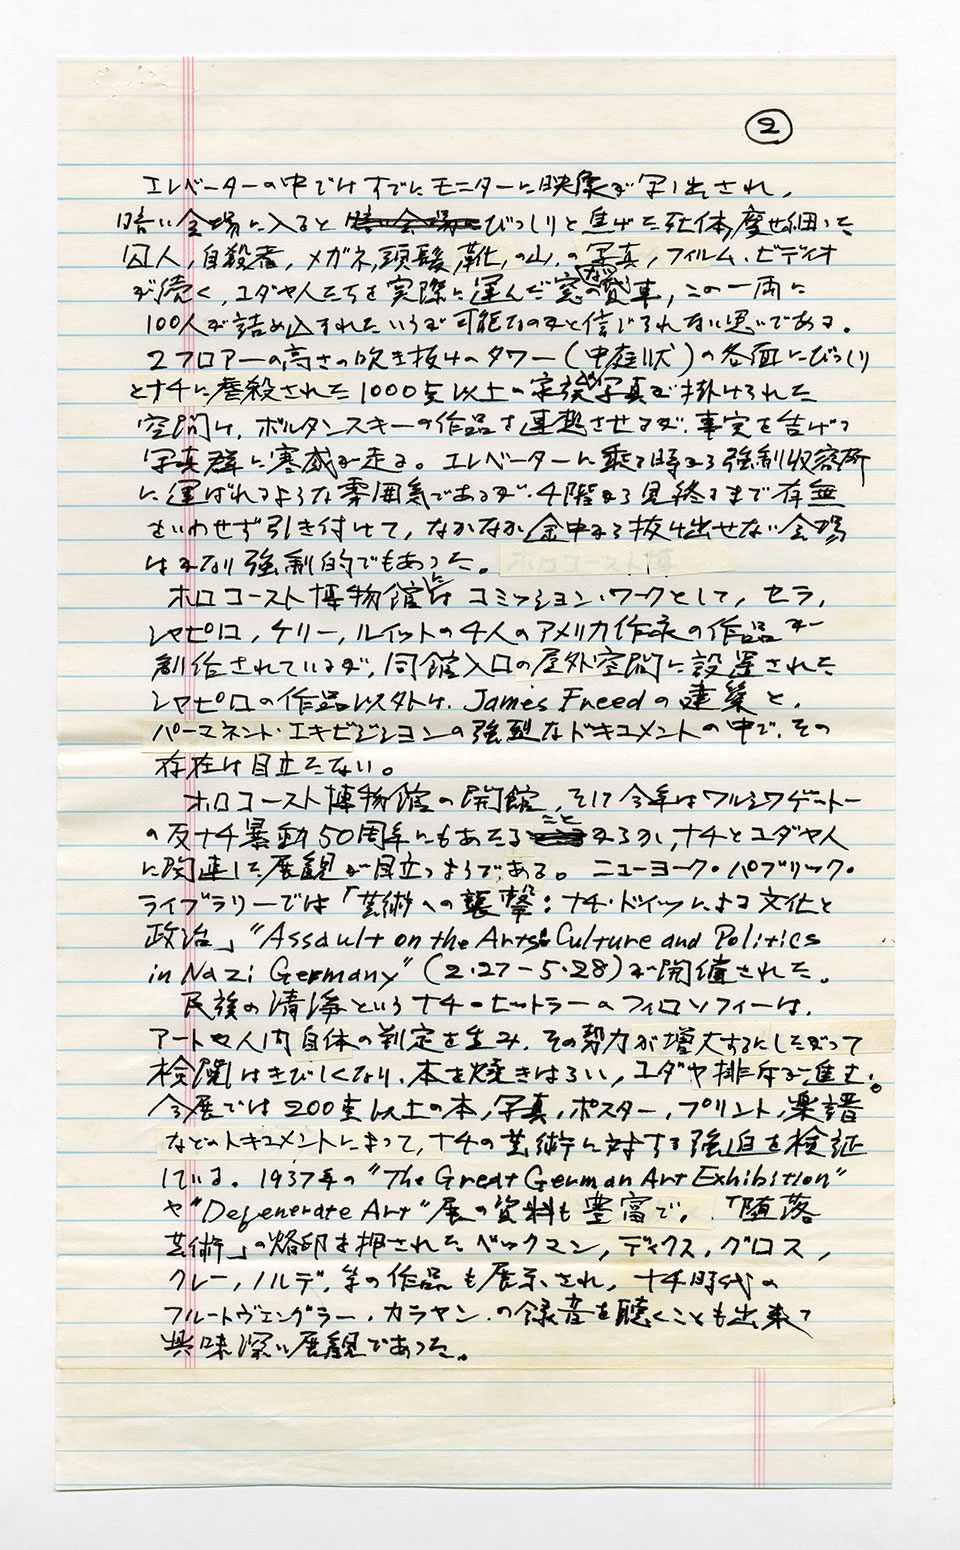 ②
エレベーターの中ではすでにモニターに映像が写し出され、
暗い会場に入ると びっしりと焦げた死体、痩せ細った
囚人、自殺者、メガネ、頭髪、靴、の山、の写真、フィルム、ビディオ
が続く、ユダヤ人たちを実際に運んだ窓のない貨車、この一両に
100人が詰め込まれたというが可能なのかと信じられない思いである。
2フロアーの高さの吹き抜けのタワー(中庭状)の各面にびっしり
とナチに虐殺された1000点以上の家族写真が掛けられた
空間は、ボルタンスキーの作品を連想させるが、事実を告げる
写真群に寒感が走る。エレベーターに乗る時から強制収容所
に運ばれるような雰囲気であるが、4階から見終るまで有無
をいわせず引き付けて、なかなか途中から抜け出せない会場
はかなり強制的でもあった。
ホロコースト博物館には コミッション・ワークとして、セラ、
シャピロ、ケリー、ルイットの4人のアメリカ作家の作品が
創作されているが、同館入口の屋外空間に設置された
シャピロの作品以外は、James Freedの建築と、
パーマネント・エキゼジションの強烈なドキュメントの中で、その
存在は目立たない。
ホロコースト博物館の開館、そして今年はワルシワゲットー
の反ナチ暴動50周年にもあたることからか、ナチとユダヤ人
に関連した展観が目立つようである。 ニューヨーク・パブリック・
ライブラリーでは「芸術への襲撃:ナチ・ドイツによる文化と
政治」"Assault on the Arts: Culture and Politics
in Nazi Germany" (2・27-5・28)が開催された。
民族の清浄というナチ・ヒットラーのフィロソフィーは、
アートや人間自体の判定を生み、その勢力が増大するにしたがって
検閲はきびしくなり、本を焼きはらい、ユダヤ排斥が進む。
今展では200点以上の本、写真、ポスター、プリント、楽譜
などのドキュメントによって、ナチの芸術に対する強迫を検証
している。1937年の"The Great German Art Exhibition"
や"Degenerate Art"展の資料も豊富で、「堕落
芸術」の烙印を押されたベックマン、ディクス、グロス、
クレー、ノルデ、等の作品も展示され、ナチ時代の
フルートヴェングラー、カラヤン、の録音を聴くことも出来て
興味深い展観であった。